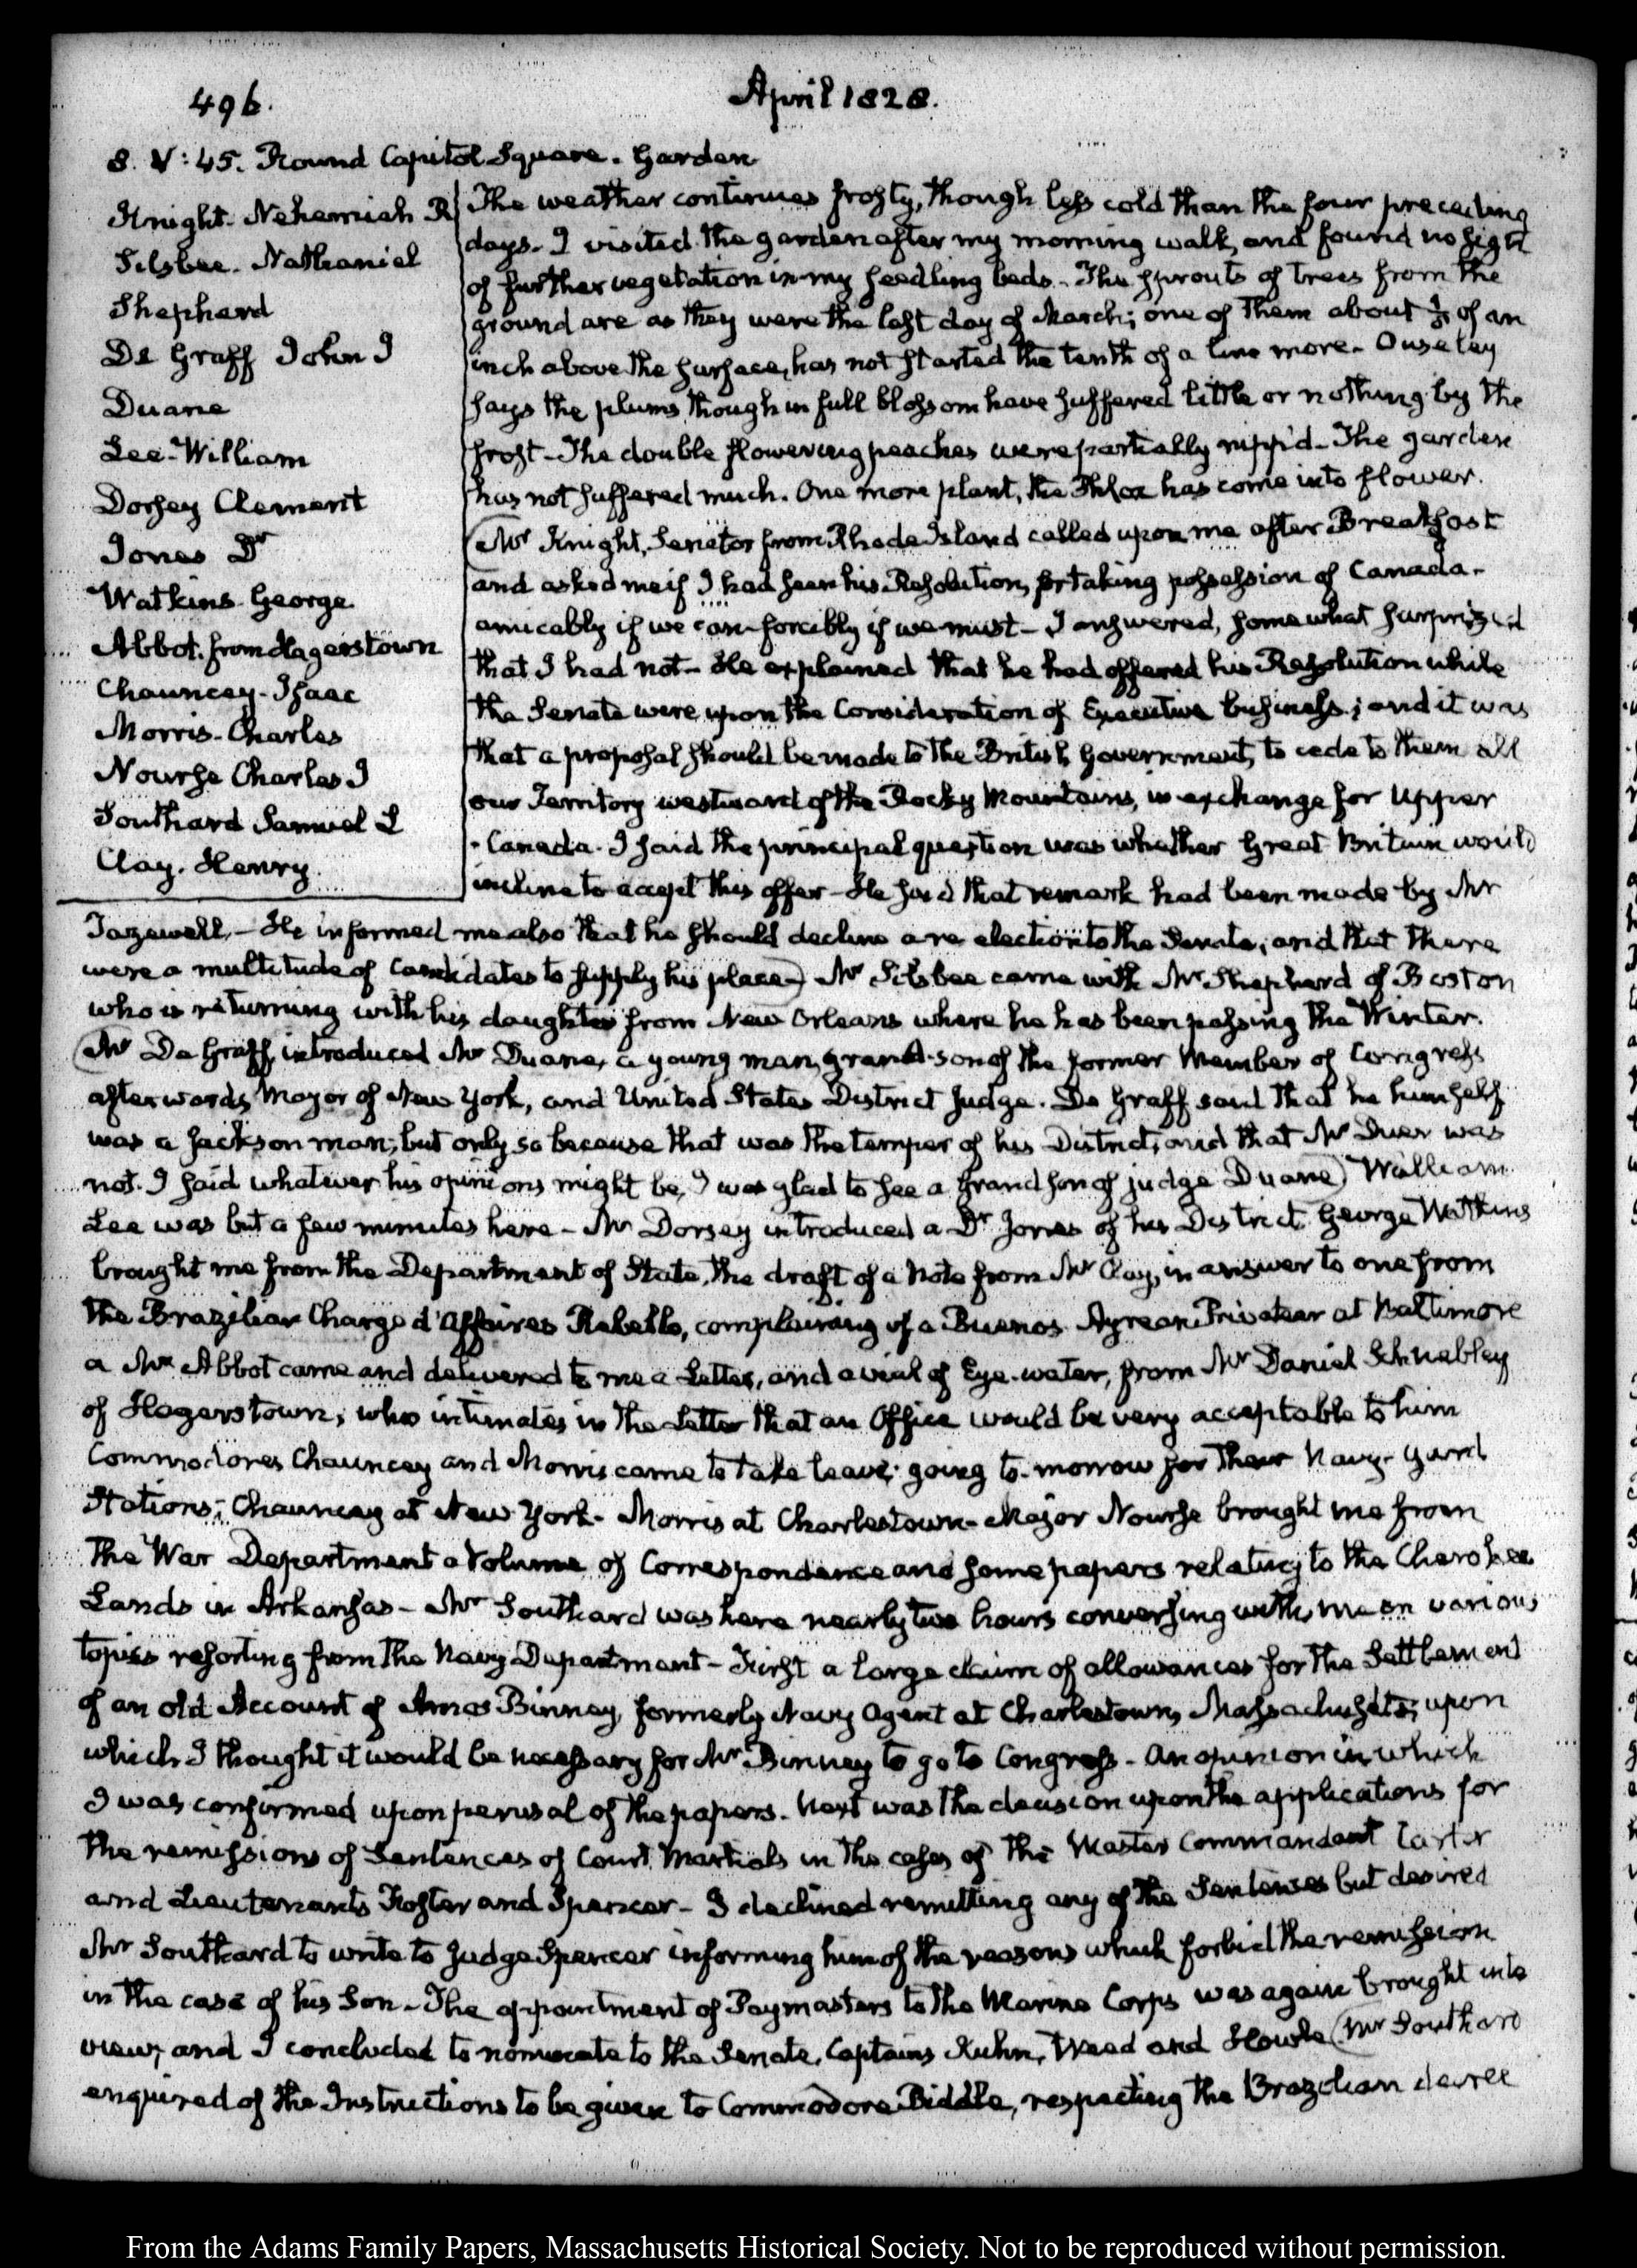 496.
April 1828.
8. V:45. Round Capitol Square. Garden
Knight. Nehemiah R
Silsbee. Nathaniel
Shephard
De Graff John I
Duane
Lee. William
Dorsey Clement
Jones Dr
Watkins George
Abbot. from Hagerstown
Chauncey. Isaac
Morris. Charles
Nourse Charles J
Southard Samuel L
Clay. Henry.
The weather continues frosty, though less cold than the four preceding
days. I visited the garden after my morning walk, and found no sight
of further vegetation in my seedling beds. The sprouts of trees from the
ground are as they were the last day of March; one of them about of an
inch above the surface, has not started the tenth of a line more. Ouseley
says the plums though in full blossom have suffered little or nothing by the
frost. The double flowering peaches were partially nipp'd. The garden
has not suffered much. One more plant, the Phlox has come into flower.
Mr Knight, Senator from Rhode Island called upon me after Breakfast
and asked me if I had seen his Resolution, for taking possession of Canada.
amicably if we can forcibly if we must. I answered, somewhat surprized
that I had not. He explained that he had offered his Resolution while
the Senate were upon the Consideration of Executive business; and it was
that a proposal should be made to the British Government, to cede to them all
our Territory westward of the Rocky Mountains, in exchange for Upper
Canada. I said the principal question was whether Great Britain would
incline to accept this offer. He said that remark had been made by Mr
Tazewell. He informed me also that he should decline a re election to the Senate, and that there
were a multitude of Candidates to supply his place. Mr Silsbee came with Mr Shephard of Boston
who is returning with his daughter from New Orleans where he has been passing the Winter.
Mr De Graff, introduced Mr Duane, a young man, grand-son of the former Member of Congress
afterwards Mayor of New York, and United States District Judge. De Graff said that he himself
was a Jackson man, but only so because that was the temper of his District, and that Mr Duer was
not. I said whatever his opinions might be, I was glad to see a Grandson of judge Duane. William
Lee was but a few minutes here. Mr Dorsey introduced a Dr Jones of his District. George Watkins
brought me from the Department of State, the draft of a Note from Mr Clay, in answer to one from
the Brazilian Chargé d'Affaires Rebello, complaining of a Buenos Ayrean Privateer at Baltimore
a Mr Abbot came and delivered to me a Letter, and a vial of Eye-water, from Mr Daniel Schnebley
of Hagerstown, who intimates in the Letter that an Office would be very acceptable to him
Commodores Chauncey and Morris came to take leave; going to-morrow for their Navy-Yard
Stations; Chauncey at New York. Morris at Charlestown. Major Nourse brought me from
the War Department a Volume of Correspondence and some papers relating to the Cherokee
Lands in Arkansas. Mr Southard was here nearly two hours conversing with me on various
topics resorting from the Navy Department. First a large claim of allowances for the Settlement
of an old Account of Amos Binney, formerly Navy Agent at Charlestown, Massachusetts; upon
which I thought it would be necessary for Mr Binney to go to Congress. An opinion in which
I was confirmed upon perusal of the papers. Next was the decision upon the applications for
the remissions of Sentences of Court Martials in the cases of the Master Commandant Carter
and Lieutenants Foster and Spencer. I declined remitting any of the Sentences but desired
Mr Southard to write to Judge Spencer informing him of the reasons which forbid the remission
in the case of his Son. The appointment of Paymasters to the Marine Corps was again brought into
view, and I concluded to nominate to the Senate, Captains Kuhn, Weed and Howle. Mr Southard
enquired of the Instructions to be given to Commodore Biddle, respecting the Brazilian decree
From the Adams Family Papers, Massachusetts Historical Society. Not to be reproduced without permission.